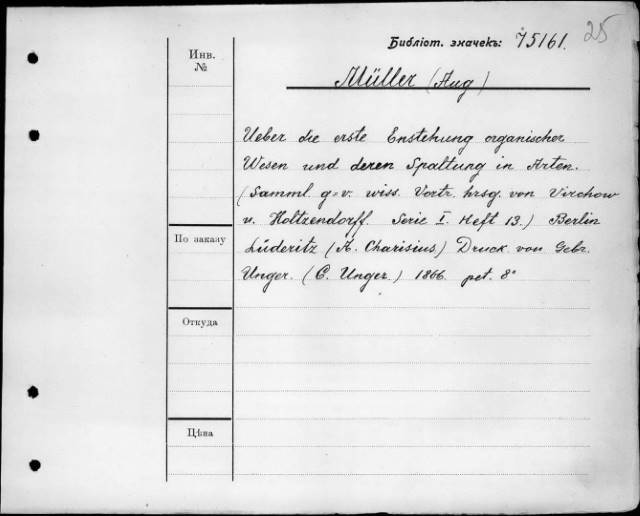 25
Библіот. значекъ: 75161.
Инв. №
Müller (Aug)
Ueber die erste Enstehung organischer
Wesen und deren Spaltung in Arten.
(Samml. g-v. wiss. Vortr. hrsg. von Virchow
v. Holtzendorff. Serie I. Heft 13.) Berlin
По заказу
Lüderitz (A. Charisius) Druck von Gebr.
Unger. (C. Unger.) 1866. pet. 8°
Откуда
Цѣна